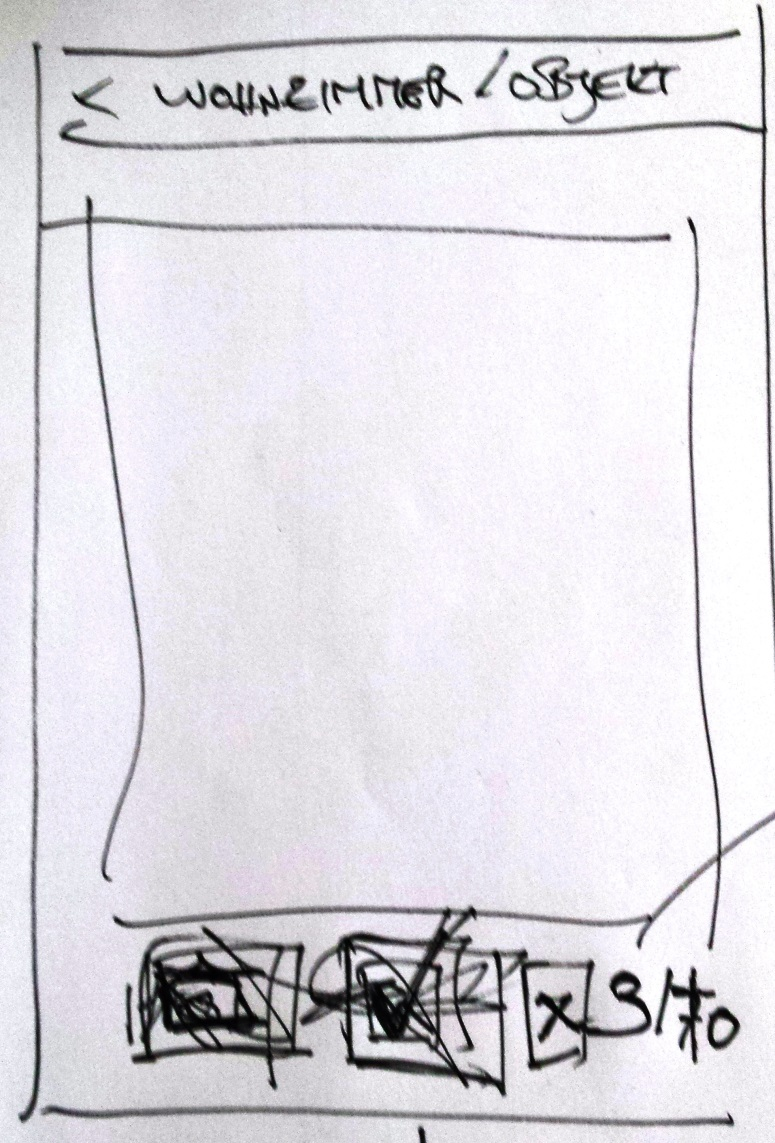 < WOHNZIMMER / OBJEKT
X 3/10